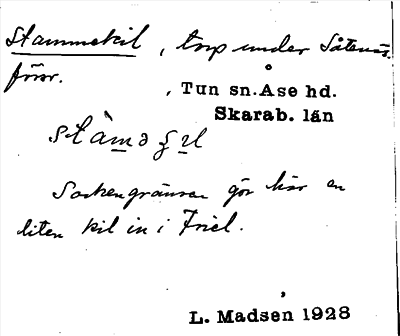 Stammekil, torp under Såtenäs
förr.
, Tun sn. Åse hd.
Skarab. län
Sockengränsen gör här en
liten kil in i Friel.
L. Madsen 1928